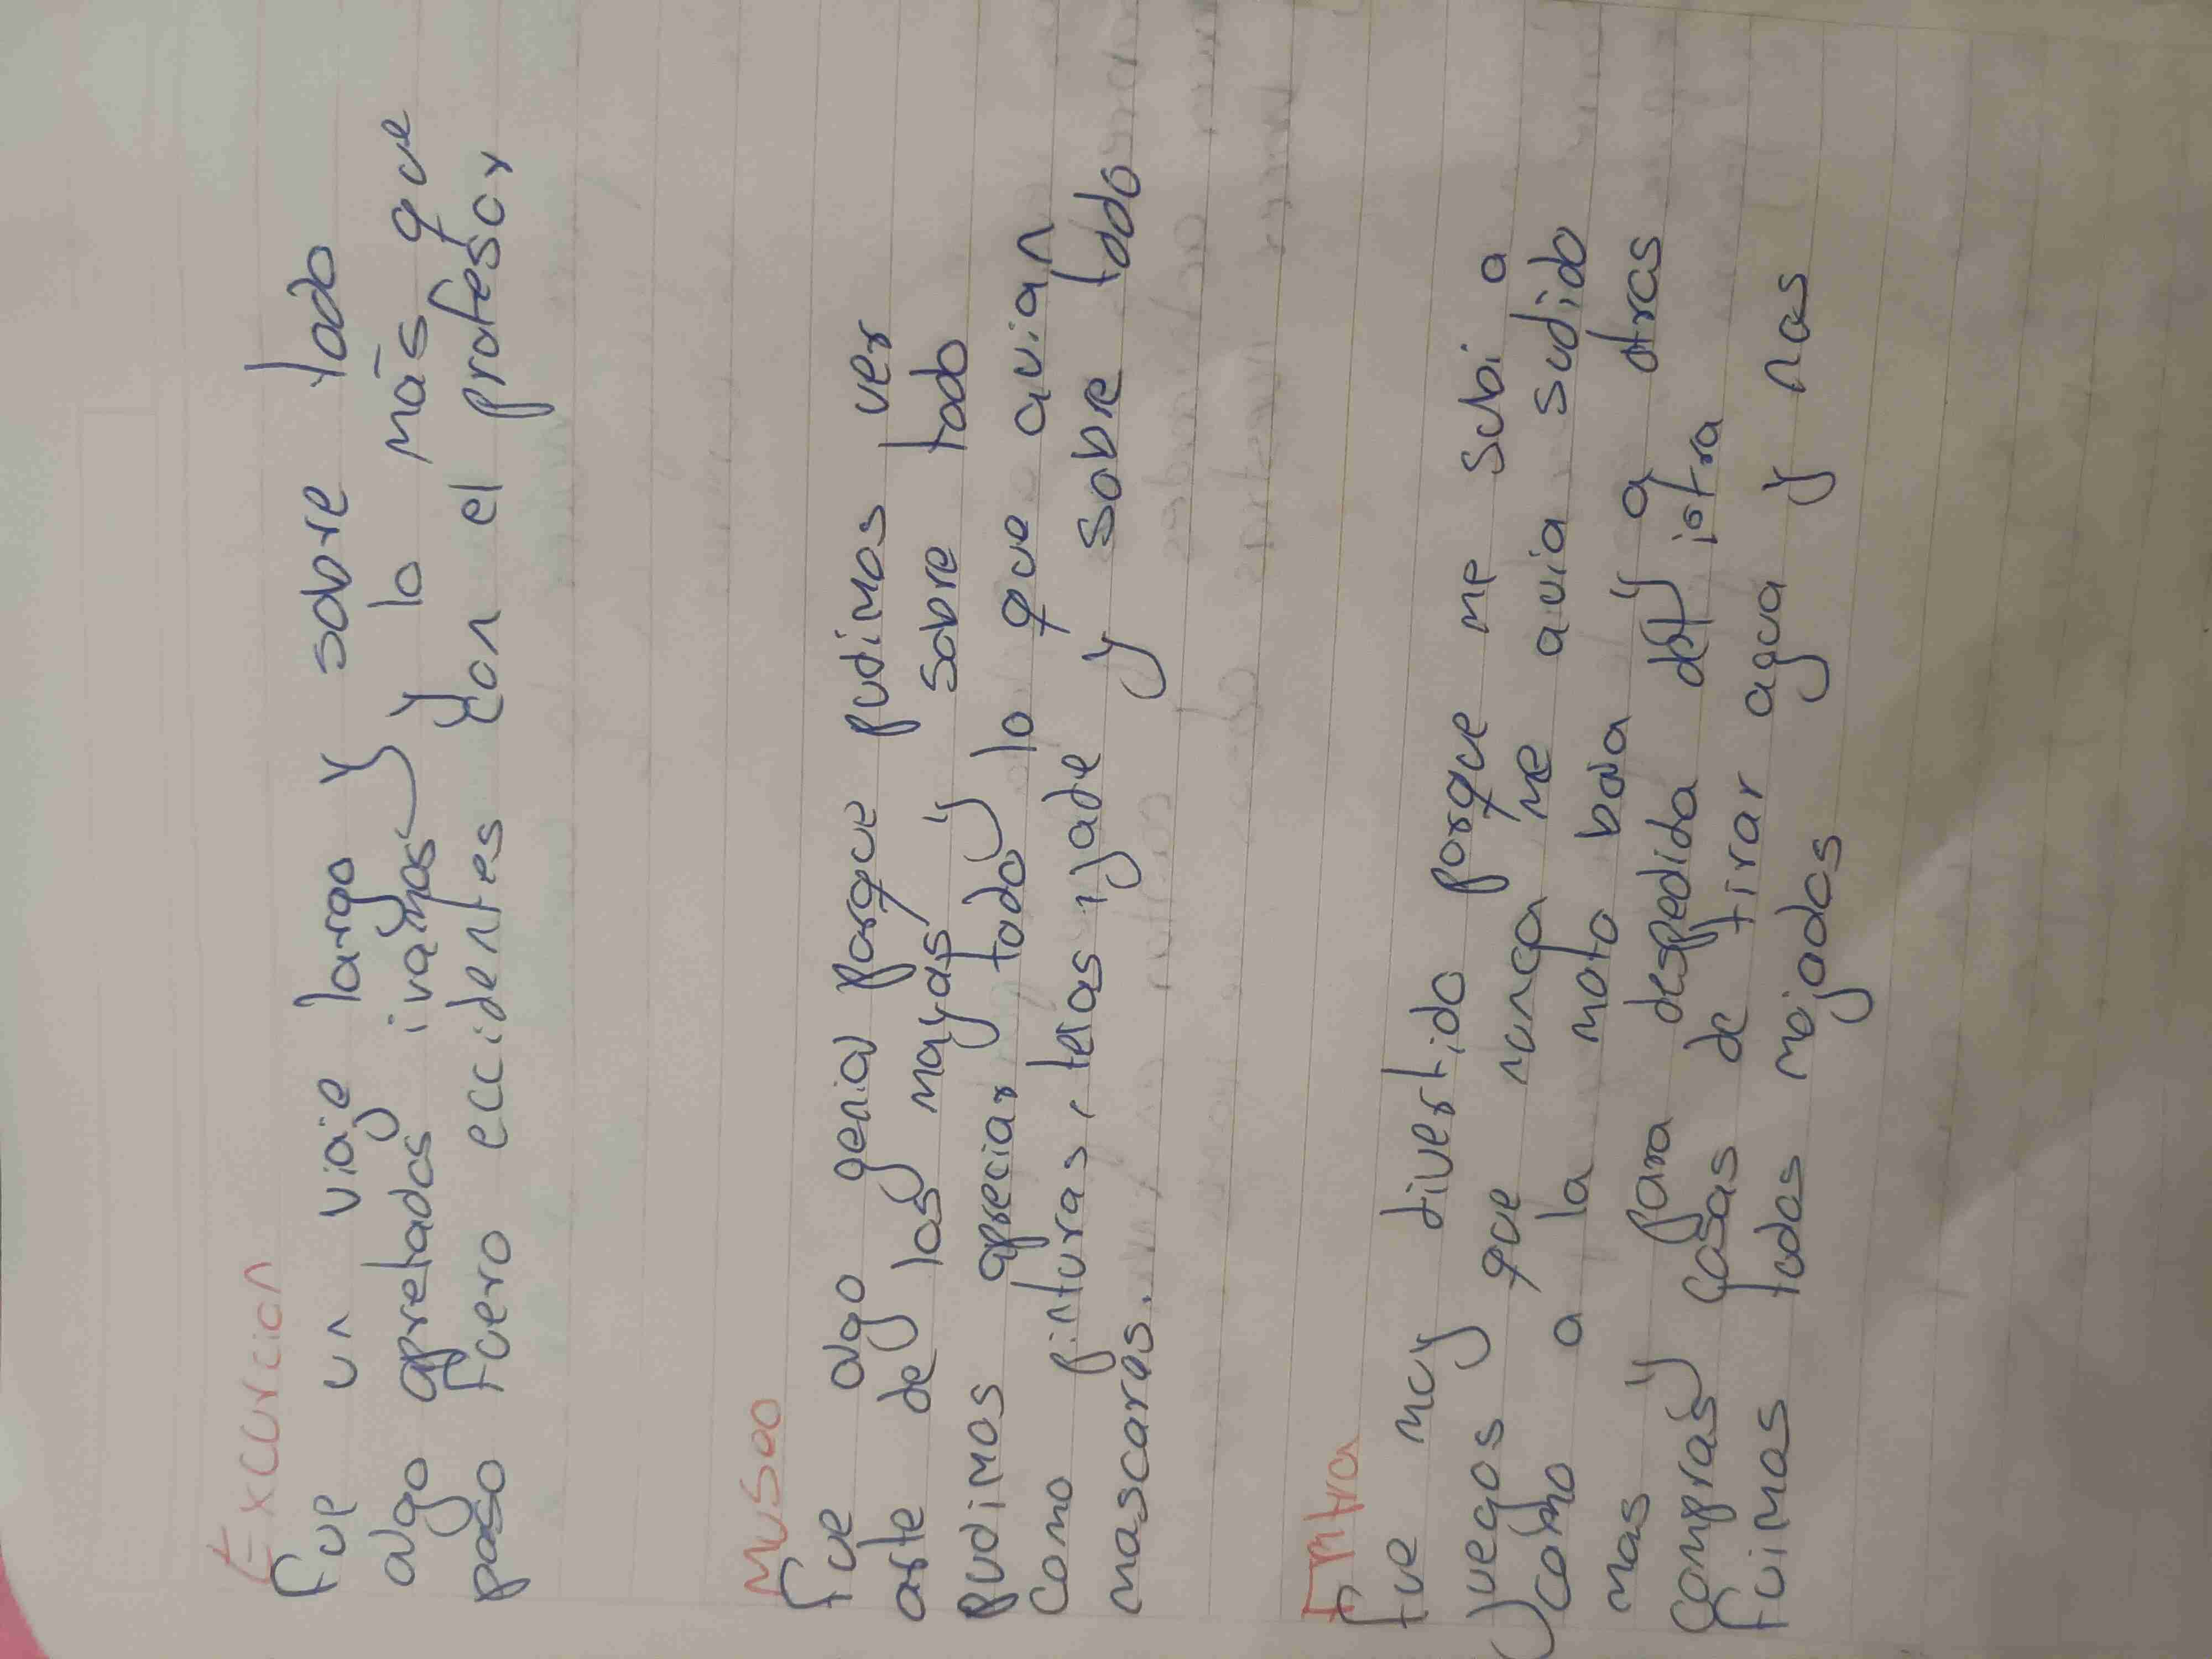 Excurcion
fue un viaje largo y sobre todo
algo apretados ivamos y lo más que
paso fuero eccidentes con el profesor
Museo
fue algo genial porque pudimos ver
arte de los mayas y sobre todo
pudimos apreciar todo lo que avian
como pinturas, telas ijade y sobre todo
mascaras.
Imtra
fue muy divertido porque me subi a
juegos que nunca me avia sudido
como a la moto bana y a otras
mas y para despedida del iotra
compras y cosas de tirar agua y nos
fuimos todos mojados